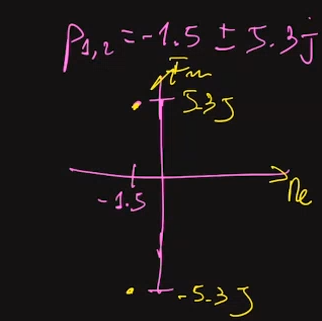 P1,2 = -1.5 ± 5.3j
Im
5.3J
Re
-1.5
-5.3J